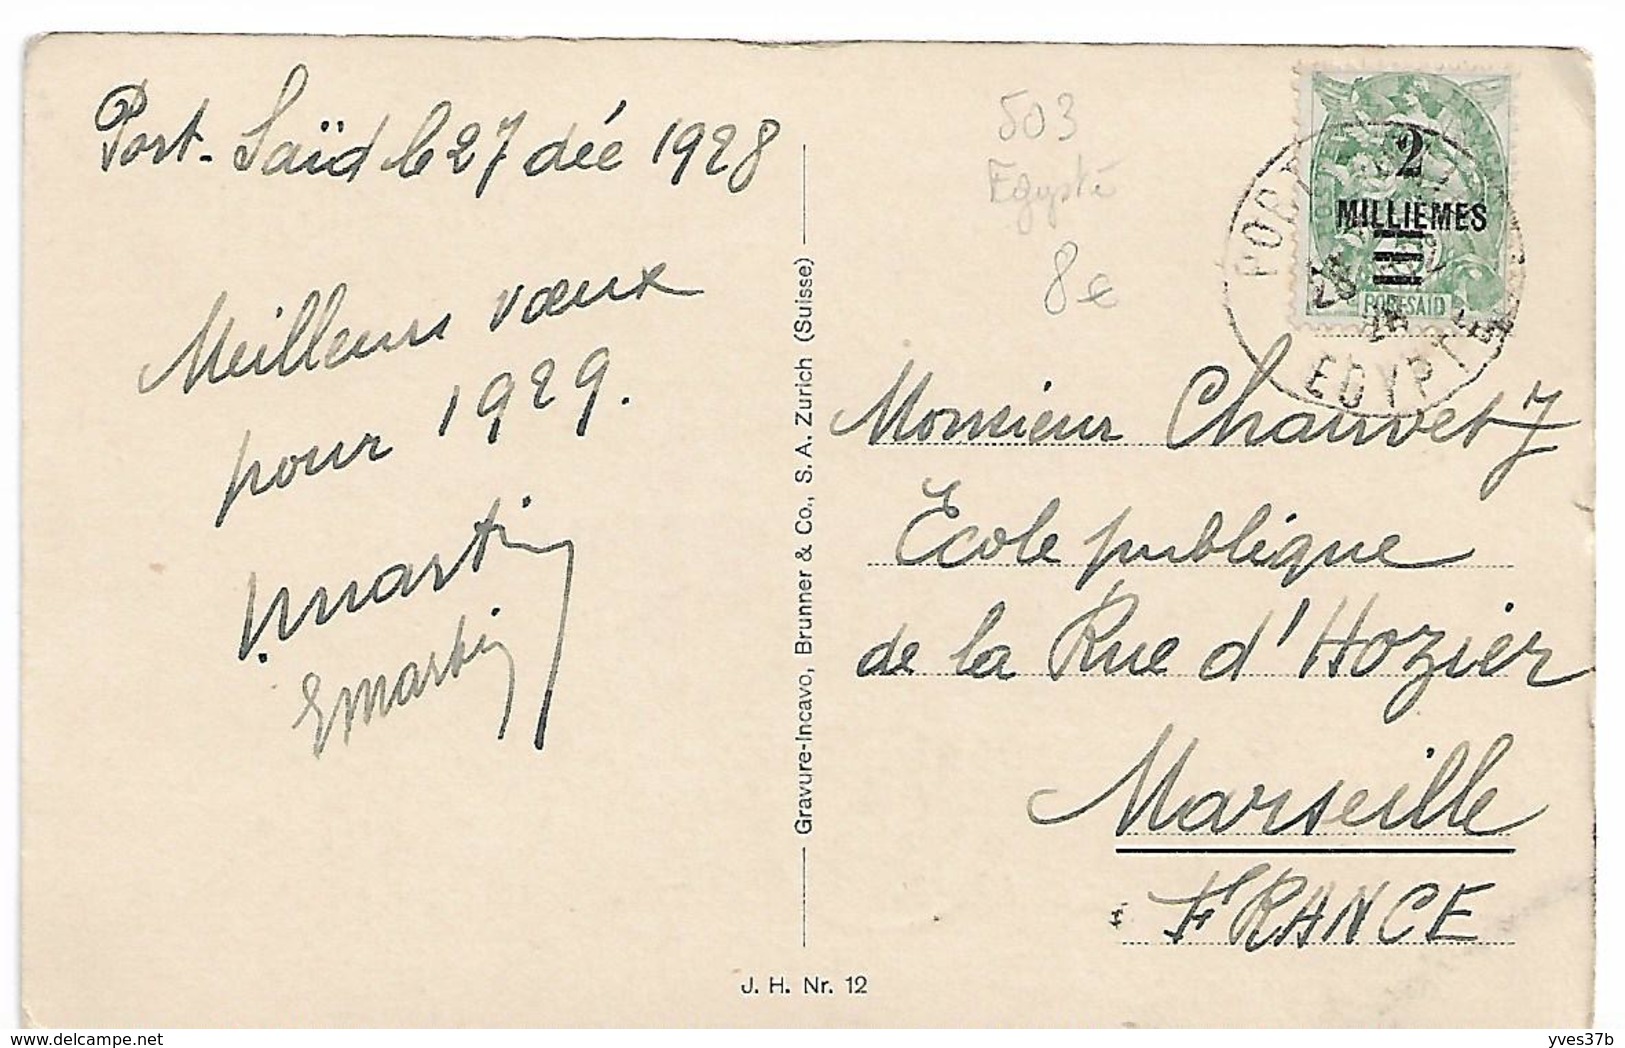 Port-Saïd le 27 déc 1928
Meilleurs vœux
pour 1929.
Martin
EMartin
Gravure-Incavo, Brunner & Co., S. A. Zürich (Suisse)
J. H. Nr. 12
503
Egypte
8e
2
MILLIÈMES
PORT-SAID
PORT
28
28
EGYPT
Monsieur Chauvet J
Ecole publique
de la Rue d'Hozier
Marseille
FRANCE
delcampe.net
yves37b